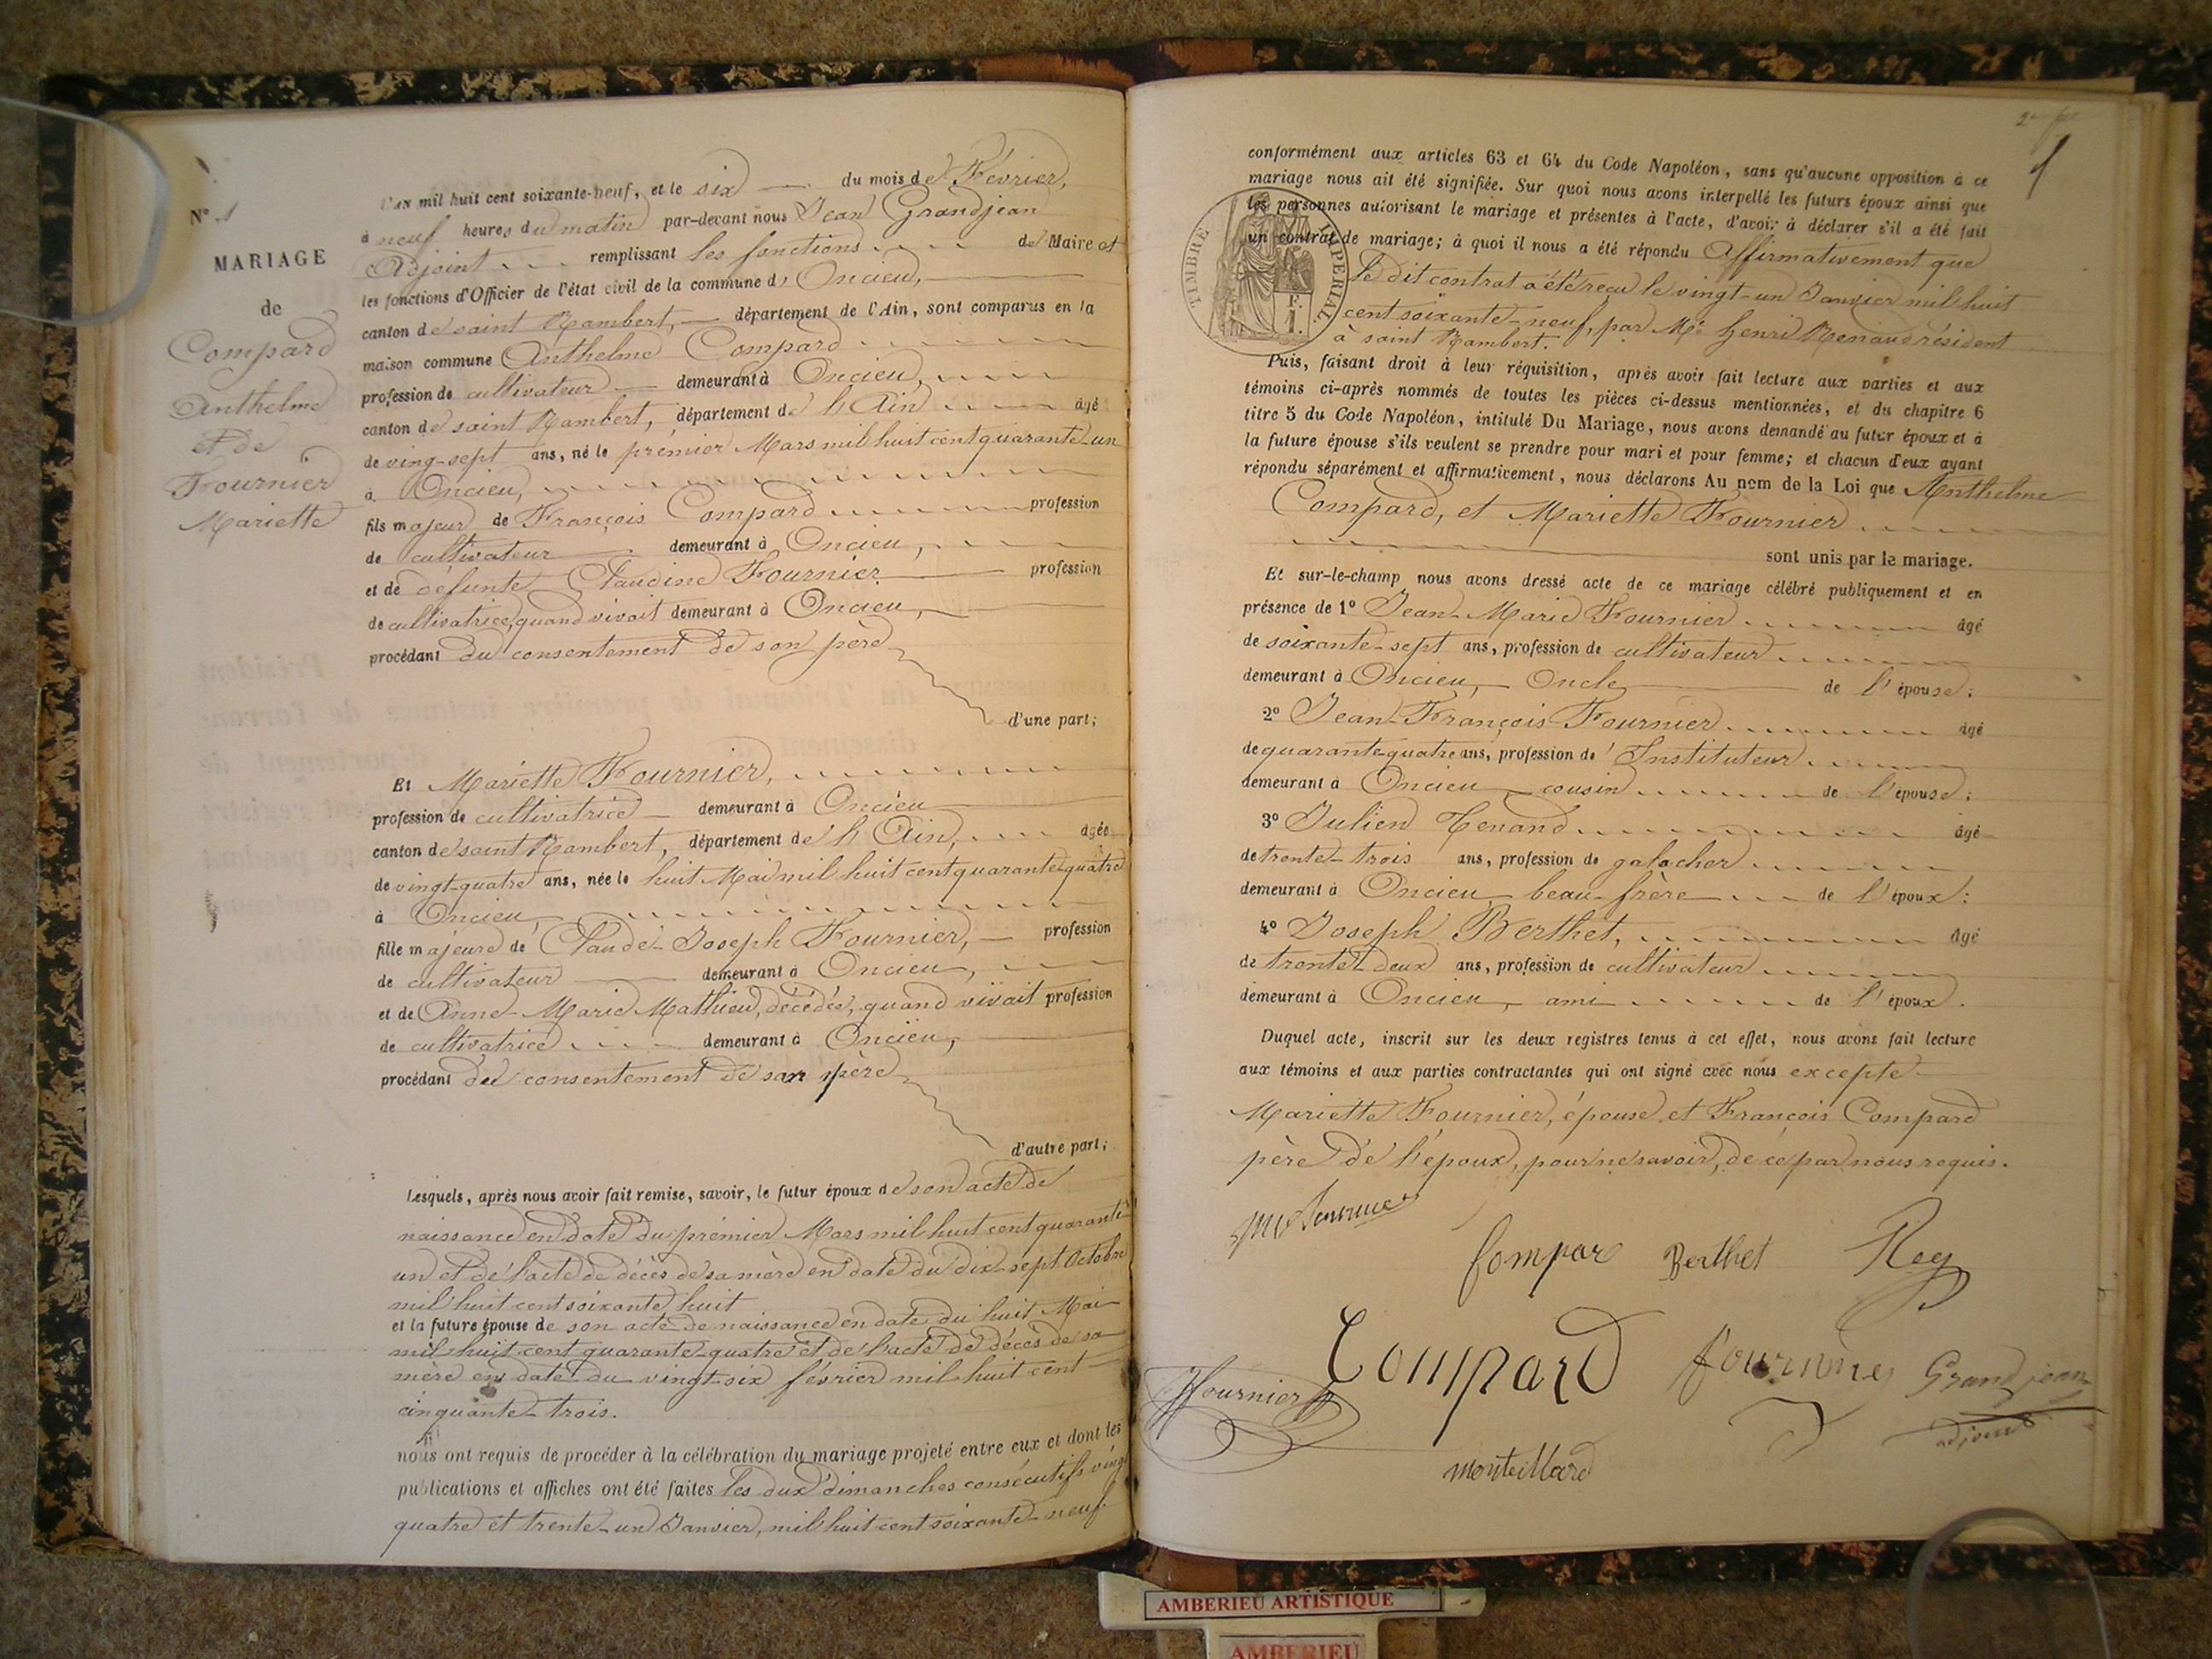 N° 1
MARIAGE
de
Compard
Anthelme
et de
Fournier
Mariette
L'an mil huit cent soixante-neuf, et le six du mois de Février,
à neuf heures du matin par-devant nous Jean Grandjean
Adjoint remplissant les fonctions de Maire et
les fonctions d'Officier de l'état civil de la commune d'Oncieu,
canton de saint Rambert, département de l'Ain, sont comparus en la
maison commune Anthelme Compard
profession de cultivateur demeurant à Oncieu,
canton de saint Rambert, département de l'Ain âgé
de ving-sept ans, né le prémier Mars mil huit cent quarante-un
à Oncieu,
fils majeur de François Compard profession
de cultivateur demeurant à Oncieu,
et de défunte Claudine Fournier profession
de cultivatrice, quand vivait demeurant à Oncieu,
procédant du consentement de son père
d'une part;
Et Mariette Fournier,
profession de cultivatrice demeurant à Oncieu
canton de saint Rambert, département de l'Ain, âgée
de vingt-quatre ans, née le huit Mai mil huit cent quarante-quatre
à Oncieu
fille majeure de Claude-Joseph Fournier, profession
de cultivateur demeurant à Oncieu,
et de Anne-Marie Mathieu, décédée, quand vivait profession
de cultivatrice demeurant à Oncieu,
procédant du consentement de son père
d'autre part;
Lesquels, après nous avoir fait remise, savoir, le futur époux de son acte de
naissance en date du prémier Mars mil huit cent quarante
un et de l'acte de décès de sa mère en date du dix-sept Octobre
mil huit cent soixante huit
et la future épouse de son acte de naissance en date du huit Mai
mil huit cent quarante-quatre et de l'acte de décès de sa
mère en date du vingt-six février mil huit cent
cinquante-trois.
nous ont requis de procéder à la célébration du mariage projeté entre eux et dont les
publications et affiches ont été faites les dux dimanches consécutifs vingt
quatre et trente-un Janvier, mil huit cent soixante-neuf.
conformément aux articles 63 et 64 du Code Napoléon, sans qu'aucune opposition à ce
mariage nous ait été signifiée. Sur quoi nous avons interpellé les futurs époux ainsi que
les personnes autorisant le mariage et présentes à l'acte, d'avoir à déclarer s'il a été fait
un contrat de mariage; à quoi il nous a été répondu Affirmativement que
le dit contrat a été reçu le vingt-un Janvier mil huit
cent soixante-neuf, par Me Henri Renaud résident
à saint Rambert.
TIMBRE IMPERIAL
F.
1.
Puis, faisant droit à leur réquisition, après avoir fait lecture aux parties et aux
témoins ci-après nommés de toutes les pièces ci-dessus mentionnées, et du chapitre 6
titre 5 du Code Napoléon, intitulé Du Mariage, nous avons demandé au futur époux et à
la future épouse s'ils veulent se prendre pour mari et pour femme; et chacun d'eux ayant
répondu séparément et affirmativement, nous déclarons Au nom de la Loi que Anthelme
Compard, et Mariette Fournier
sont unis par le mariage.
Et sur-le-champ nous avons dressé acte de ce mariage célébré publiquement et en
présence de 1° Jean-Marie Fournier âgé
de soixante-sept ans, profession de cultivateur
demeurant à Oncieu, Oncle de l'épouse;
2° Jean-François-Fournier âgé
de quarante-quatre ans, profession de Instituteur
demeurant à Oncieu, cousin de l'épouse;
3° Julien Tenand âgé
de trente-trois ans, profession de galocher
demeurant à Oncieu beau-frère de l'époux:
4° Joseph Berthet, âgé
de trente-deux ans, profession de cultivateur
demeurant à Oncieu, ami de l'époux.
Duquel acte, inscrit sur les deux registres tenus à cet effet, nous avons fait lecture
aux témoins et aux parties contractantes qui ont signé avec nous excepté
Mariette Fournier, épouse et François Compard
père de l'époux, pour ne savoir, de ce par nous requis.
Compar Berthet Rey
Compard fournier Grandjean
Jfournier adjoint
monteillard
AMBERIEU ARTISTIQUE
AMBERIEU